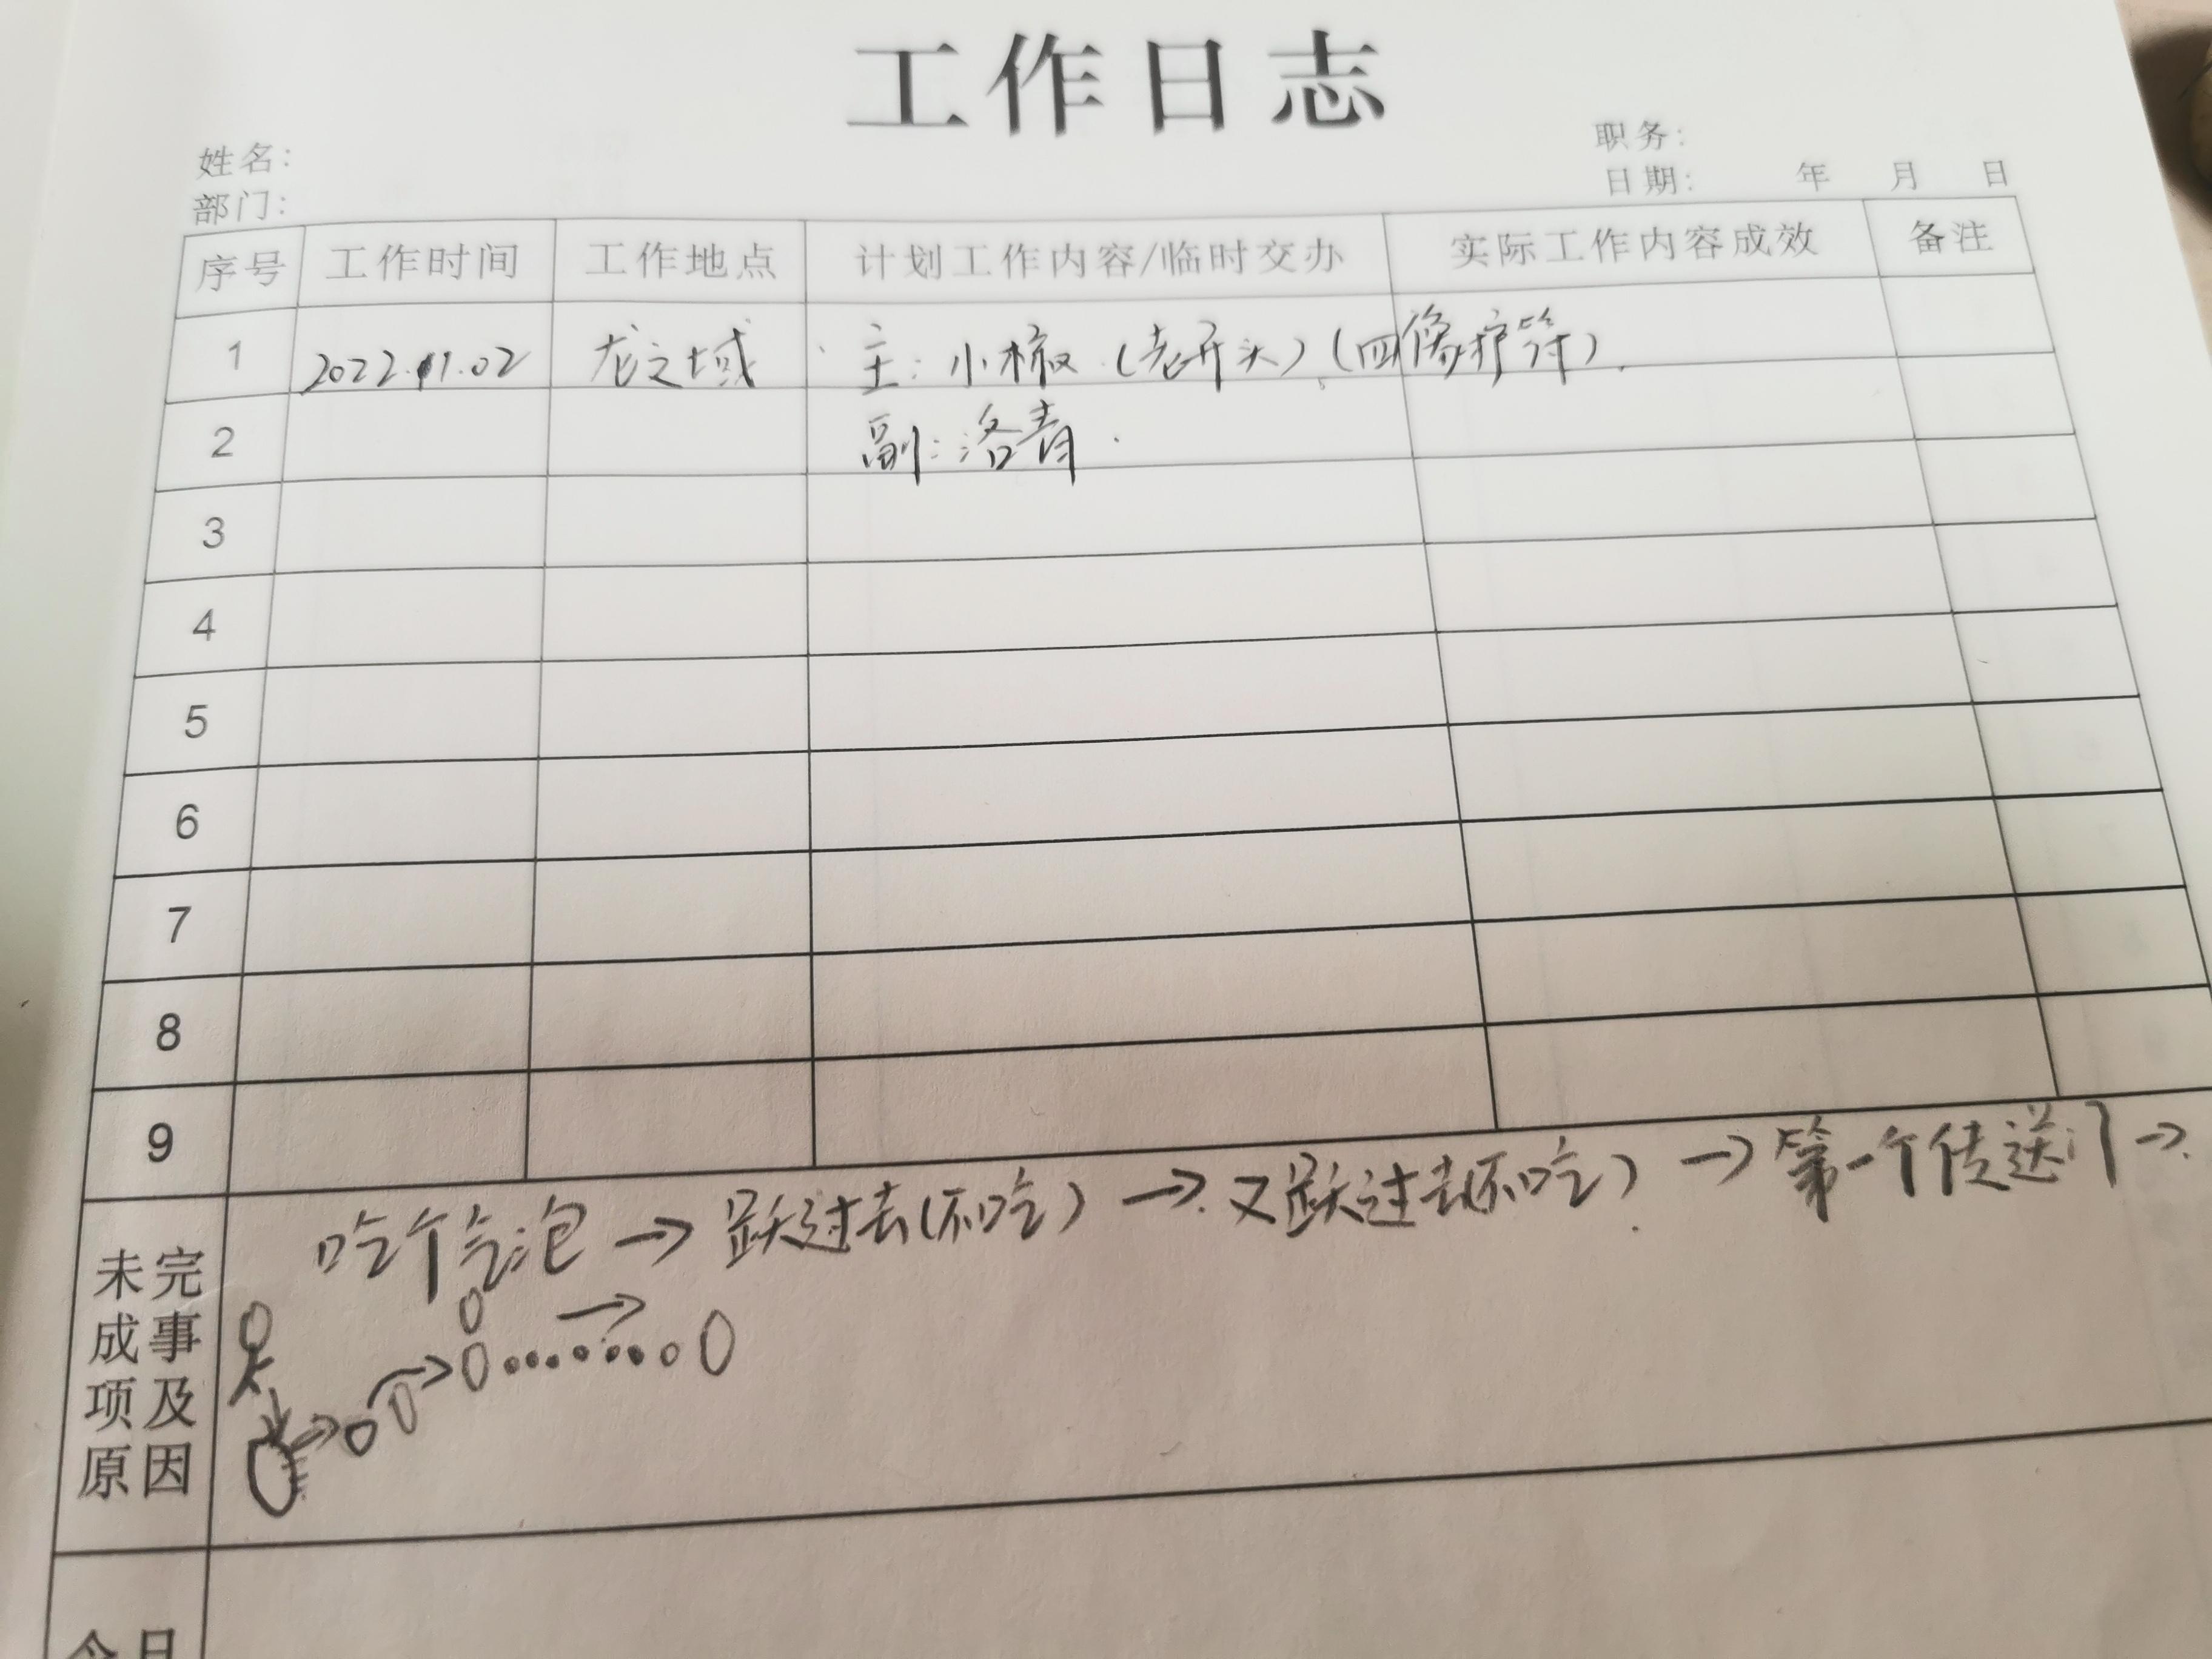 工作日志
姓名：
职务：
部门：
日期： 年 月 日
序号 工作时间 工作地点 计划工作内容/临时交办 实际工作内容成效 备注
1 2022.11.02 龙之域 主：小椒（老开头）（四像护符）
2 副：洛青
3
4
5
6
7
8
9
吃个气泡→跃过去（不吃）→又跃过去（不吃）→第一个传送门→
未完
成事
项及
原因
今日